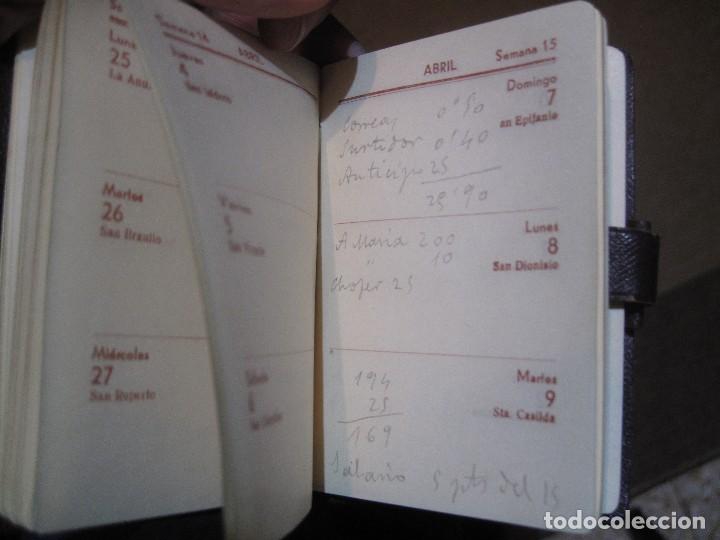 Semana 14
Lunes
25
La Anu.
ABRIL
Jueves
4
San Isidoro
Martes
26
San Braulio
Viernes
5
San Vicente
Miércoles
27
San Ruperto
Sábado
6
ABRIL
Semana 15
Domingo
7
an Epifanio
Correos 0'50
Surtidor 0'40
Anticipo 25
25'90
Lunes
8
San Dionisio
A María 200
" 10
Chofer 25
Martes
9
Sta. Casilda
194
25
169
Salario 5 pts del 15
todocoleccion.net